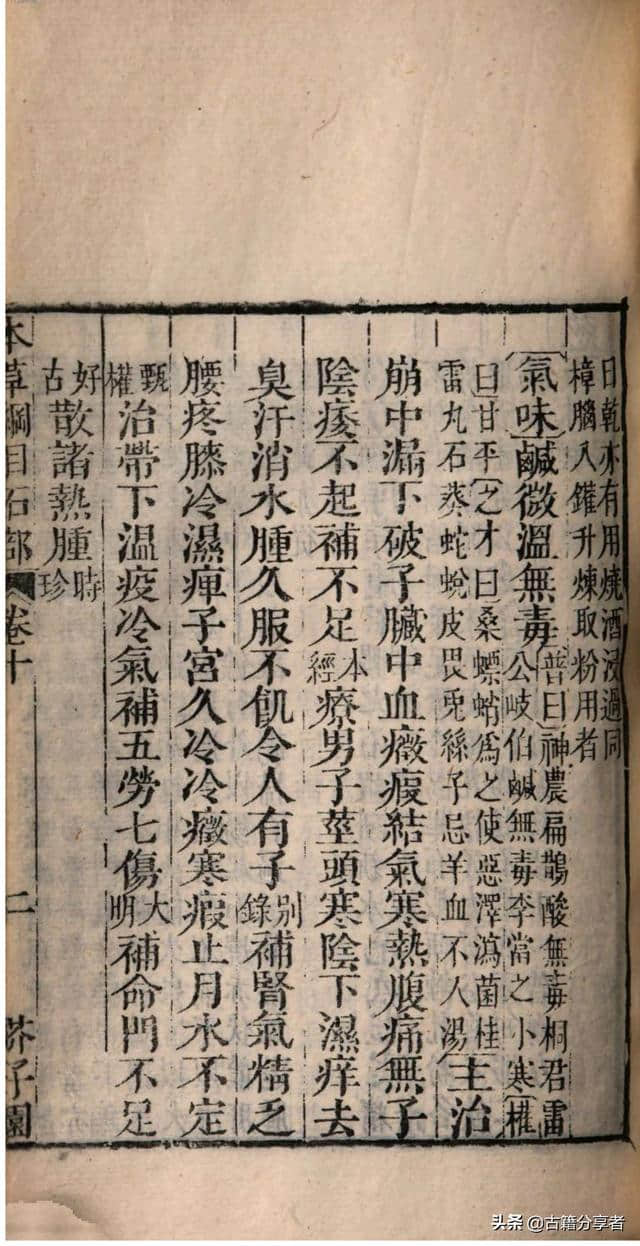 日乾亦有用燒酒浸過同
樟腦入鑵升煉取粉用者
氣味鹹微溫無毒普曰神農扁鵲酸無毒桐君雷
公岐伯鹹無毒李當之小寒權
曰甘平之才曰桑螵蛸爲之使惡澤瀉菌桂
雷丸石葵蛇蛻皮畏兎絲子忌羊血不入湯主治
崩中漏下破子臟中血癥瘕結氣寒熱腹痛無子
陰痿不起補不足本經療男子莖頭寒陰下濕痒去
臭汗消水腫久服不飢令人有子別錄補腎氣精乏
腰疼膝冷濕痺子宮久冷冷癥寒瘕止月水不定
甄權治帶下溫疫冷氣補五勞七傷大明補命門不足
好古散諸熱腫時珍
本草綱目石部 卷十 二 芥子園
头条@古籍分享者